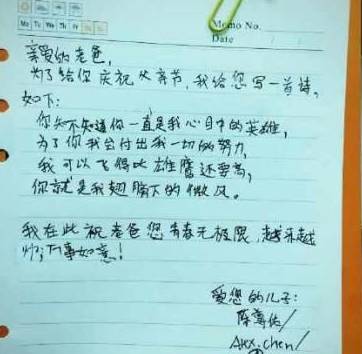 Mo Tu We Th Fr Sa Su
Memo No.
Date
亲爱的老爸,
为了给你庆祝父亲节,我给您写一首诗。
如下:
你知不知道你一直是我心目中的英雄,
为了你我会付出我一切的努力,
我可以飞得比雄鹰还要高,
你就是我翅膀下的微风。
我在此祝老爸您青春无极限,越来越
帅,万事如意!
爱您的儿子:
Alex.chen/